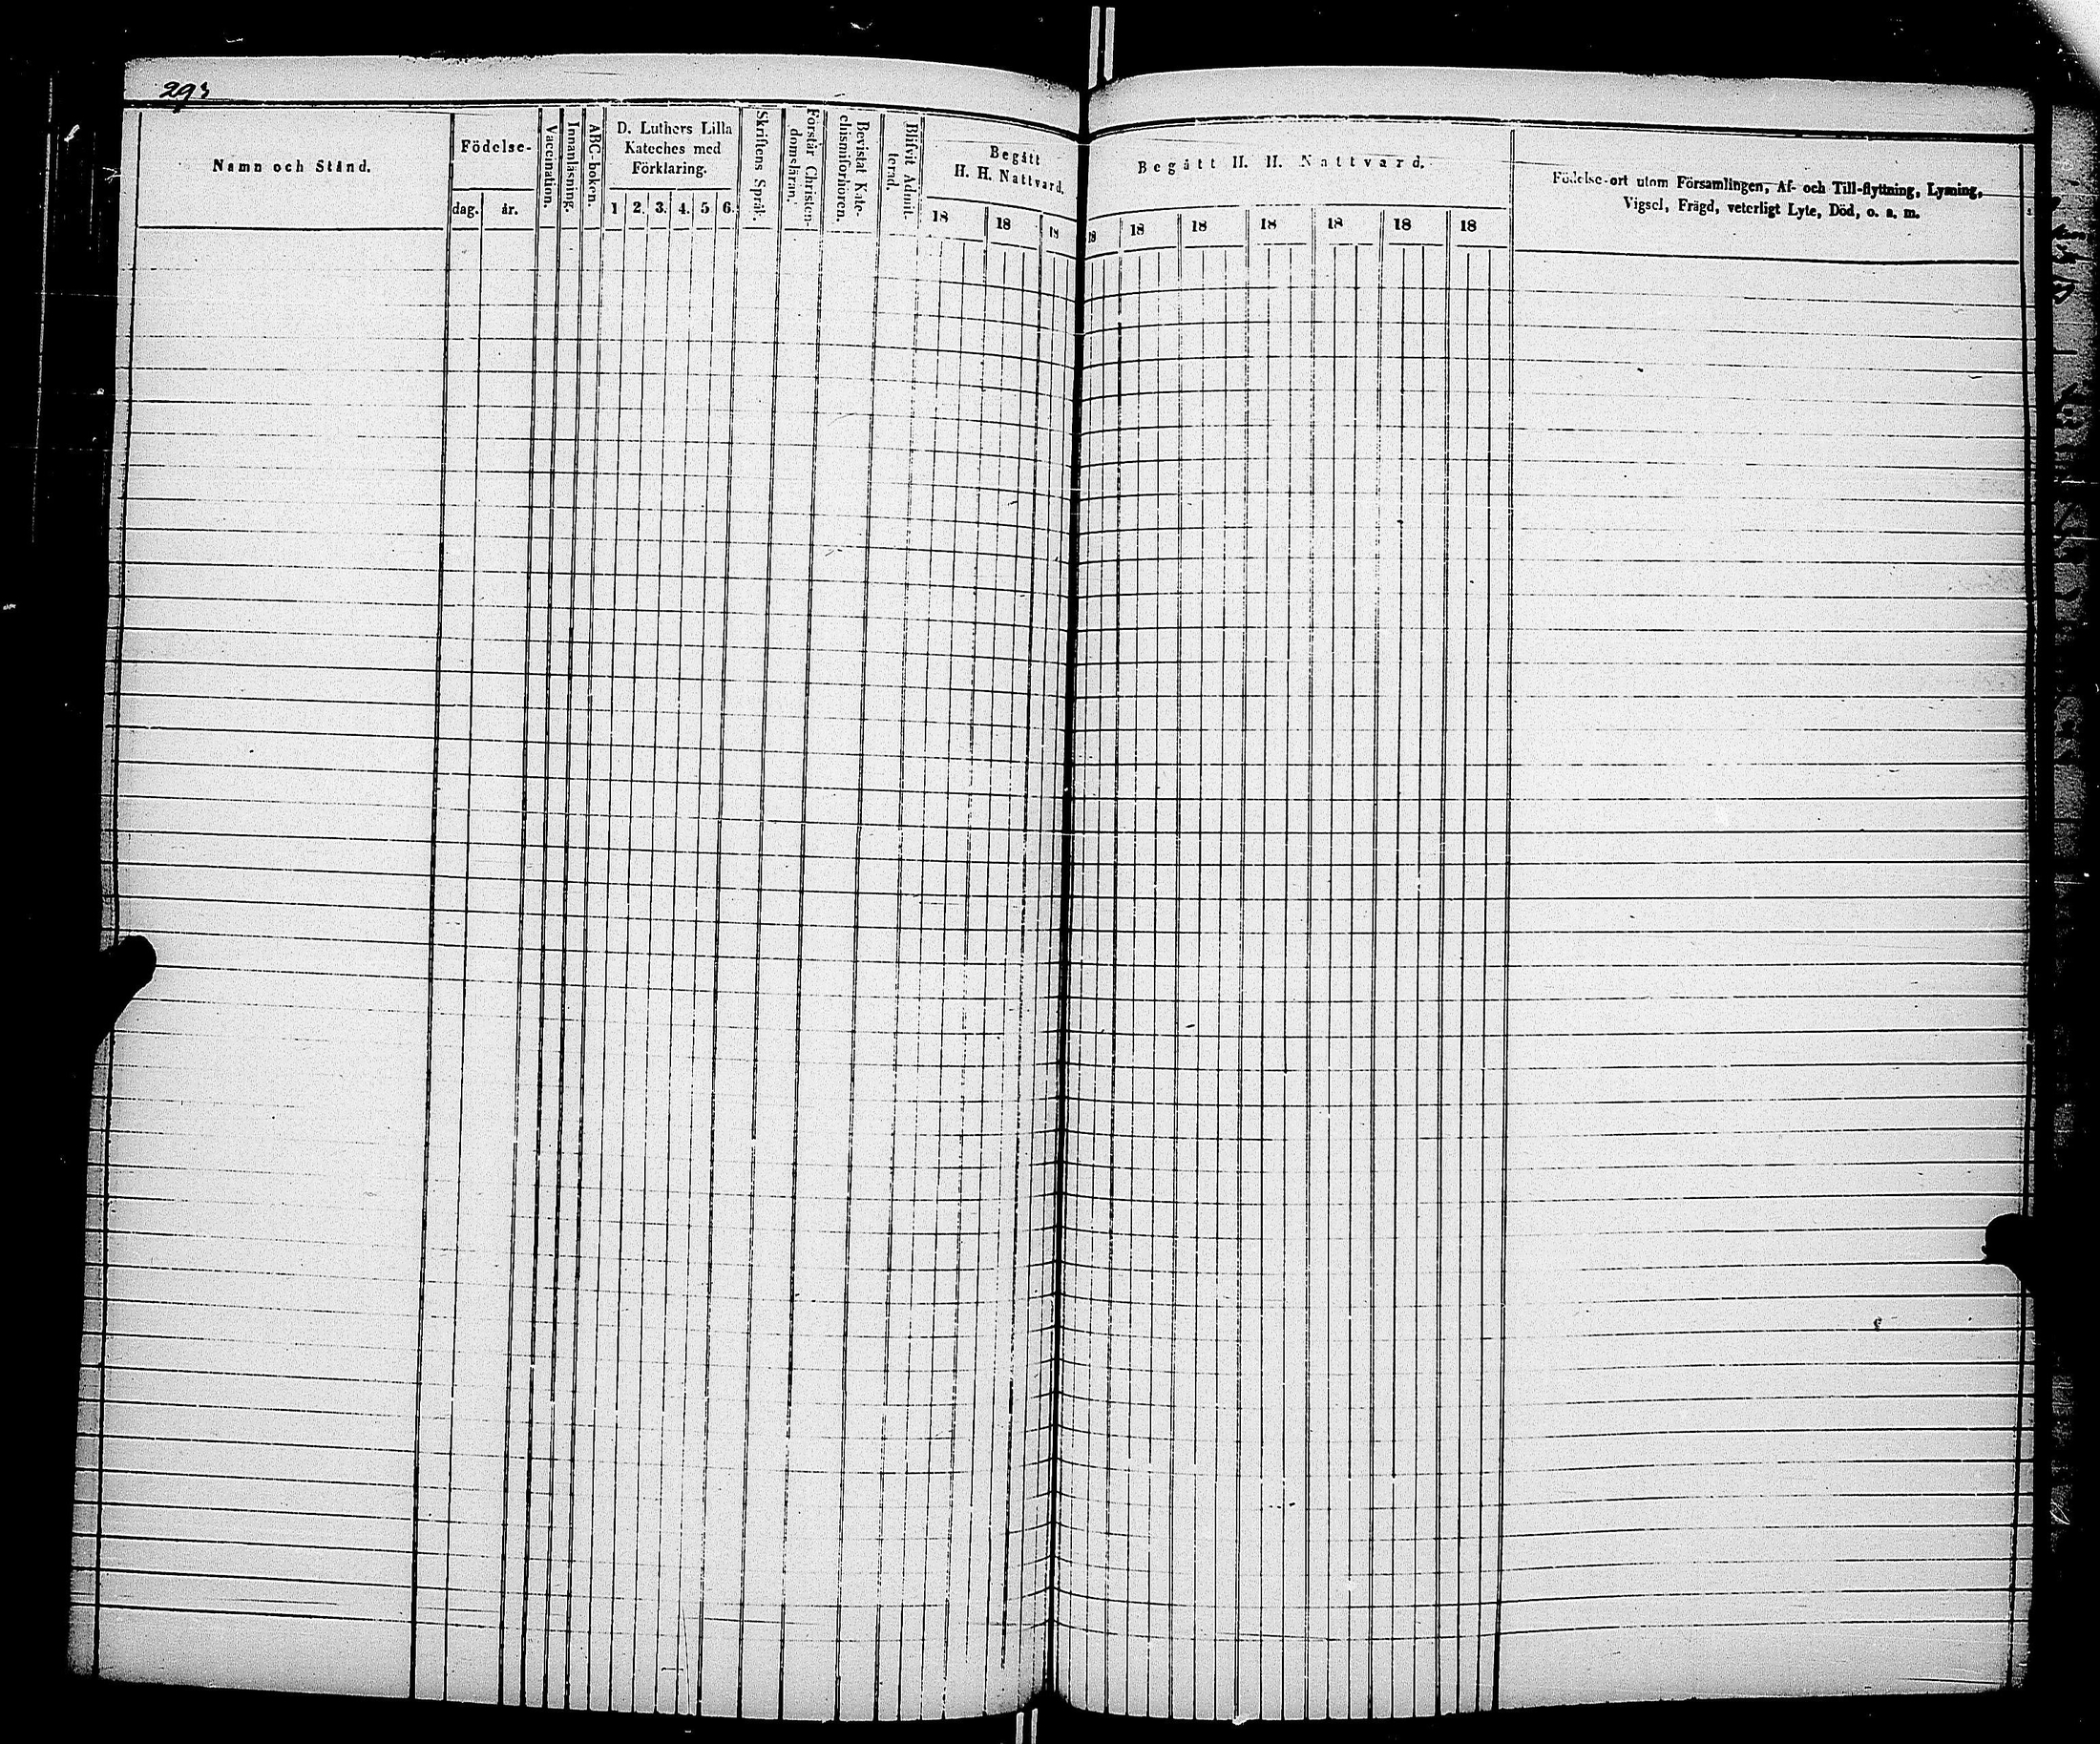 293
Namn och Stånd.
Födelse-
dag. år.
Vaccination.
Innanläsning.
ABC-boken.
D. Luthers Lilla
Kateches med
Förklaring.
1 2. 3. 4. 5 6.
Skriftens Språk.
Förstår Christen-
domsläran.
Bevistat Kate-
chismiförhören.
Blifvit Admit-
terad.
Begått
H. H. Nattvard.
18 18 18
Begått H. H. Nattvard.
18 18 18 18 18 18 18
Födelse-ort utom Församlingen, Af- och Till-flyttning, Lysning,
Vigsel, Frägd, veterligt Lyte, Död, o. s. m.